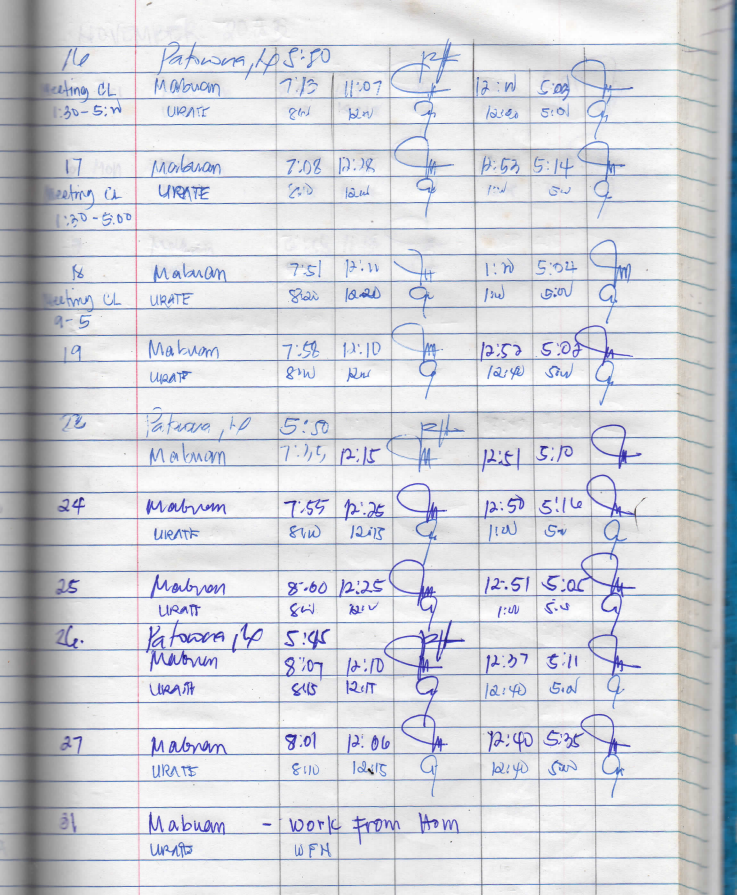 16 Patuona, LP 5:50
Meeting CL Mabuan 7:13 11:07 12:00 5:03
1:30-5:00 URATE 8:00 12:00 12:40 5:01
17 Mabuan 7:08 12:28 12:53 5:14
Meeting CL URATE 8:00 12:00 1:00 5:00
1:30-5:00
18 Mabuan 7:51 12:11 1:20 5:04
Meeting CL URATE 8:20 12:20 1:00 5:00
9-5
19 Mabuan 7:58 12:10 12:52 5:02
URATE 8:00 12:00 12:40 5:00
Patuona, LP 5:50
Mabuan 12:15 12:51 5:10
24 Mabuan 7:55 12:25 12:50 5:16
URATE 8:00 12:15 1:00 5:00
25 Mabuan 8:00 12:25 12:51 5:05
URATE 8:00 12:00 1:00 5:00
26. Patuona, LP 5:45
Mabuan 8:07 12:10 12:37 5:11
URATE 8:15 12:15 12:40 5:00
27 Mabuan 8:01 12:06 12:40 5:35
URATE 8:10 12:15 12:40 5:00
31 Mabuan - Work From Hom
URATE WFH